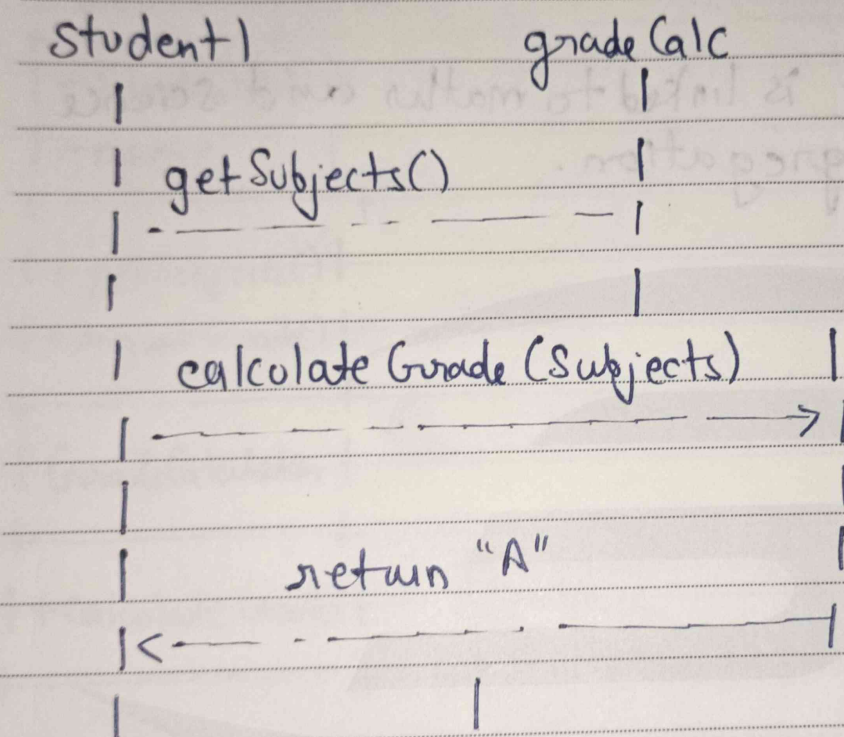 student1 gradeCalc
getSubjects()
calculateGrade(subjects)
return "A"